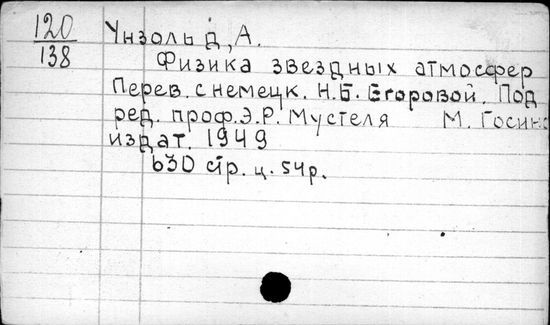 120
138
Унзольд, А.
Физика звездных атмосфер
Перев. с немецк. Н.Б. Егоровой. Под
ред. проф. Э.Р. Мустеля М. Госин
издат. 1949
630 стр. ц. 54р.